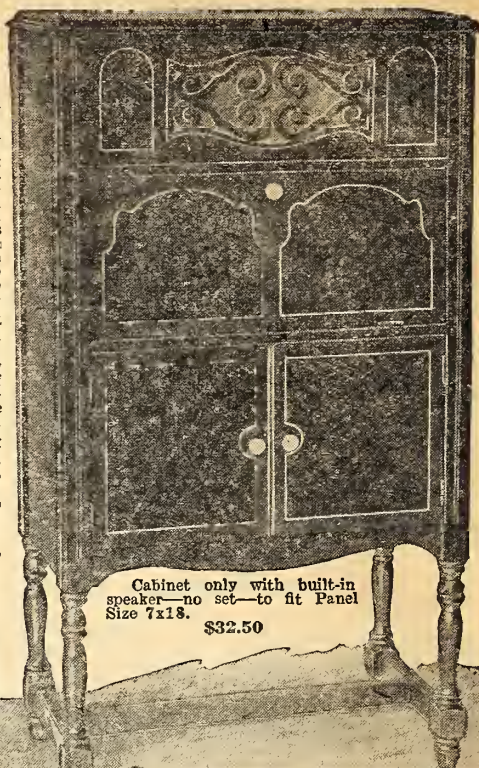 Cabinet only with built-in
speaker—no set—to fit Panel
Size 7x18.
$32.50